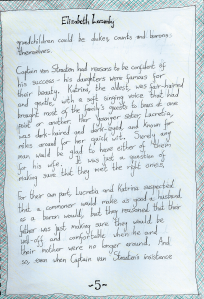 Elizabeth Lasenby
grandchildren could be dukes, counts and barons
themselves.
Captain van Straaten had reasons to be confident of
his success - his daughters were famous for
their beauty. Katrina, the oldest, was fair-haired
and gentle, with a soft singing voice that had
brought most of the family's guests to tears at one
point or another. Her younger sister, Lucretia,
was dark-haired and dark-eyed and known for
miles around for her quick wit. Surely any
man would be glad to have either of them
for his wife. It was just a question of
making sure that they met the right ones.
For their own part, Lucretia and Katrina suspected
that a commoner would make as good a husband
as a baron would, but they reasoned that their
father was just making sure they would be
well-off and comfortable when he and
their mother were no longer around. And
so, even when Captain van Straaten's insistence
-5-